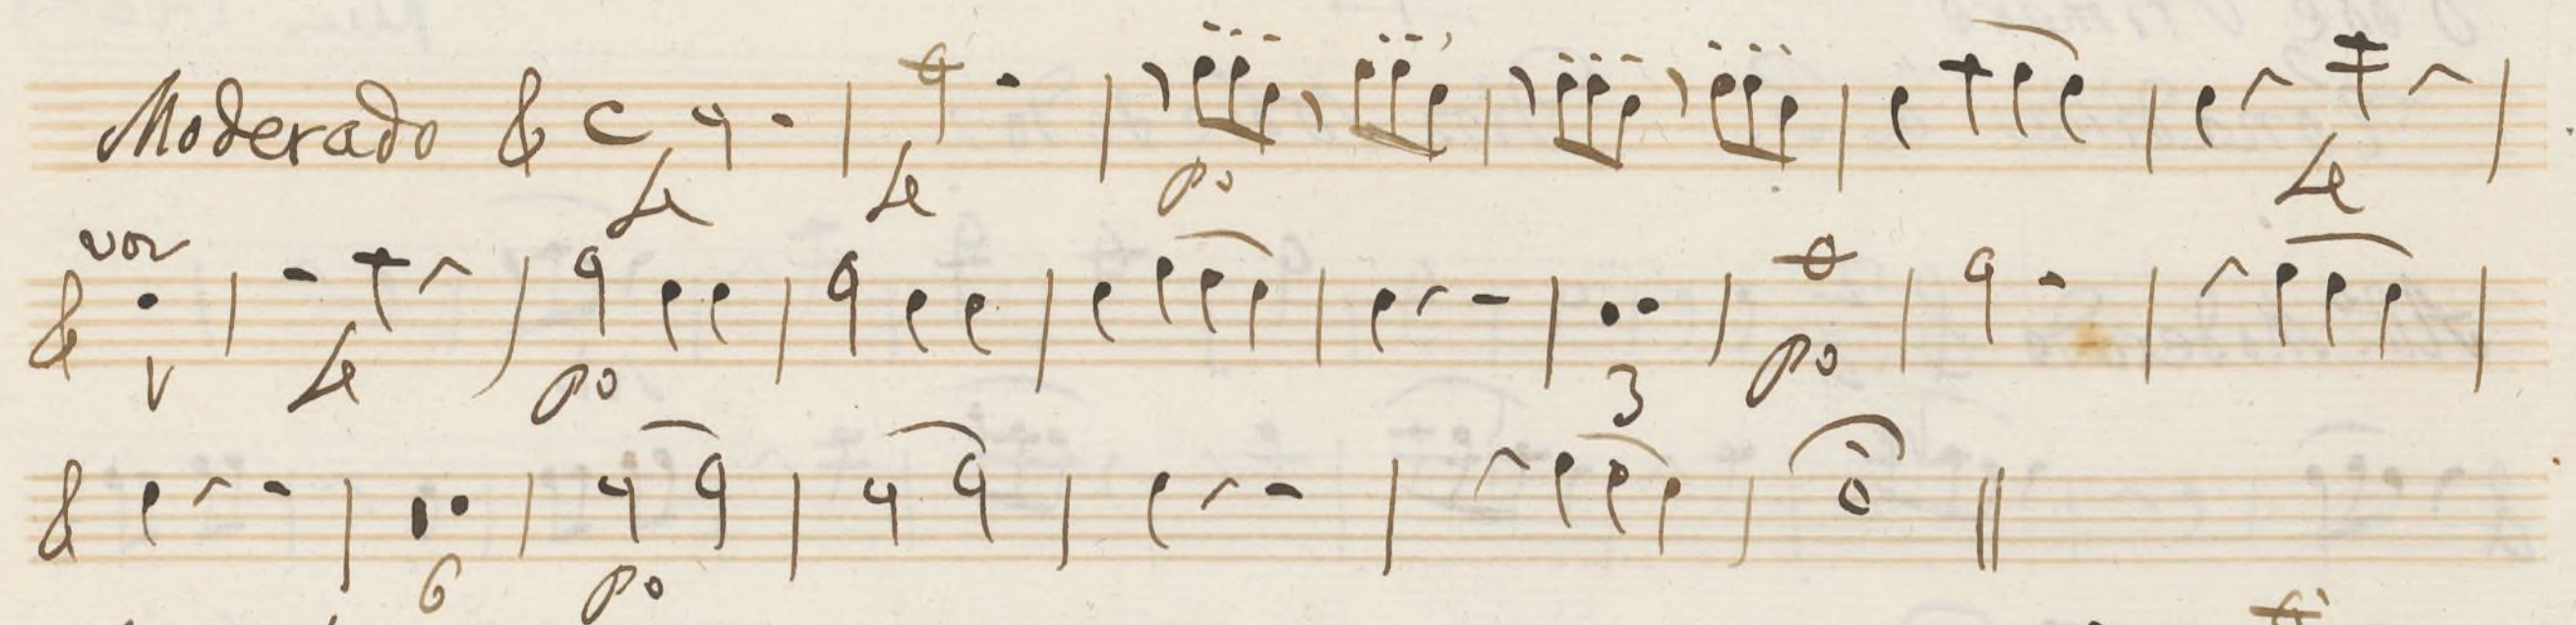 Moderado C
fe fe po fe
voz
1 fe po 3 po
6 po